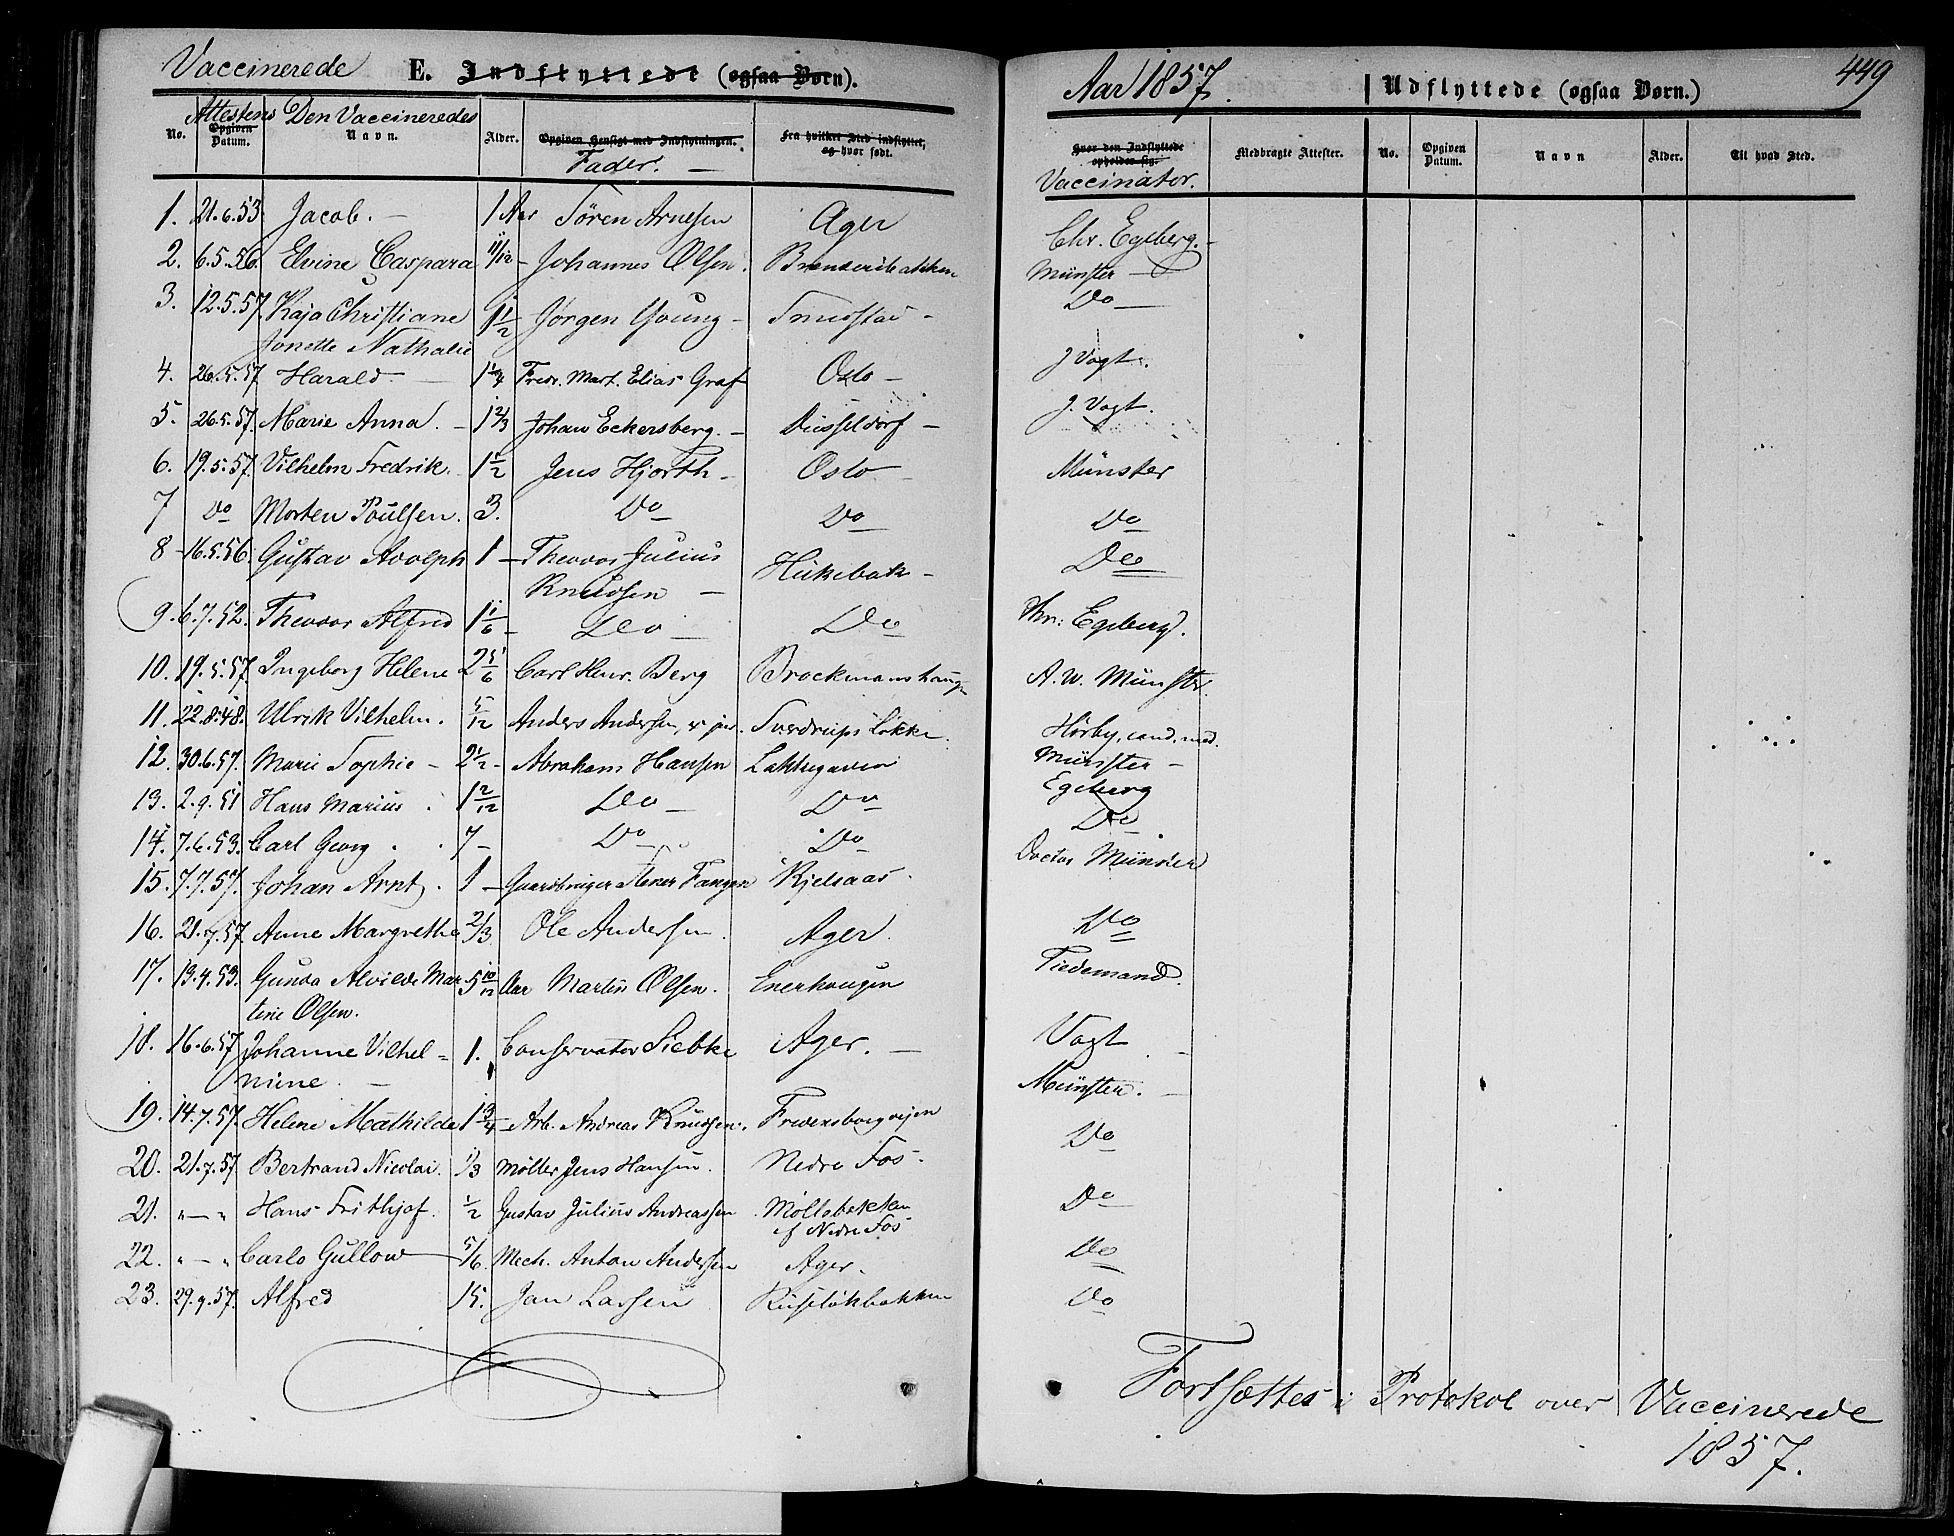 Vaccinerede E. Indflyttede (ogsaa Børn).
Aar 1857. Udflyttede (ogsaa Børn.) 449
No. Attestens Opgiven Datum. Den Vaccineredes Navn. Alder. Opgiven Hensigt med Indflytningen. Fader. Fra hvilket Sted indflyttet, og hvor født.
Hvor den Indflyttede opholder sig. Vaccinator. Medbragte Attester. No. Opgiven Datum. Navn Alder. Til hvad Sted.
1. 21.6.53 Jacob. 1 Aar Sören Arnesen Ager Chr. Egeberg.
2. 6.5.56. Elvine Caspara 11/12 Johannes Olsen. Münster
3. 12.5.57. Kaja Christiane 9 1/2 Jørgen Young Smedstad Do
Jonette Nathalie
4. 26.5.57 Harald 1 1/4 Fredr. Mart. Elias Graf Oslo J Vogt.
5. 26.5.57. Marie Anna. 1 2/3 Johan Eckersberg. Düsseldorf J. Vogt.
6. 19.5.57. Vilhelm Fredrik. 1 1/2 Jens Hjorth Oslo Münster
7 Do Morten Poulsen. 3. Do Do Do
8 16.5.56. Gustav Adolph 1 Theodor Julius Hükebak Do
Knudsen
9. 6.7.52. Theodor Alfred 1 1/6 Do Do Chr: Egeberg.
10. 19.5.57. Ingeborg Helene 2 5/6 Carl Henr. Berg Brockmanshaug A. W. Münster.
11. 22.8.48. Ulrik Vilhelm. 5/12 Anders Andersen, Sverdrups Løkke. Hörby, cand. med.
12. 30.6.57. Marie Sophie 2 1/2 Abrahem Hansen Lakkegaden Münster
13. 2.9.51 Hans Marius 1 2/12 Do Do Egeberg
14. 7.6.53. Carl Georg 7 Do Do Do
15. 7.7.57. Johan Arnt. 1 Gaardbruger Fangen Kjelsaas. Doctor Münster
16. 21.7.57. Anne Margrethe 2/3 Ole Andersen. Ager. Do
17. 13.4.53. Gunda Alvilde Mar 5 10/12 Aar Martin Olsen. Enerhaugen Tiedemand.
tine Olsen.
18. 16.6.57 Johanne Vilhel= 1. Conservator Siebke Ager. Vogt
mine.
19. 14.7.57. Helene Mathilde 1 3/4 Arb. Andreas Knudsen. Fredensborgveien Münster.
20. 21.7.57 Bertrand Nicolai. 1/3 Møller Jens Hansen. Nedre Fos. Do
21. " — " Hans Frithjof. 1/2 Gustav Julius Andreassen Møllebakken Do
af Nedre Fos
22. " — " Carlo Gullow 5/6. Mech. Anton Andersen Ager. Do
23. 29.9.57. Alfred 15. Jan Lassen Ruseløkbakken Do
Fortsættes i Protokol over Vaccinerede
1857.